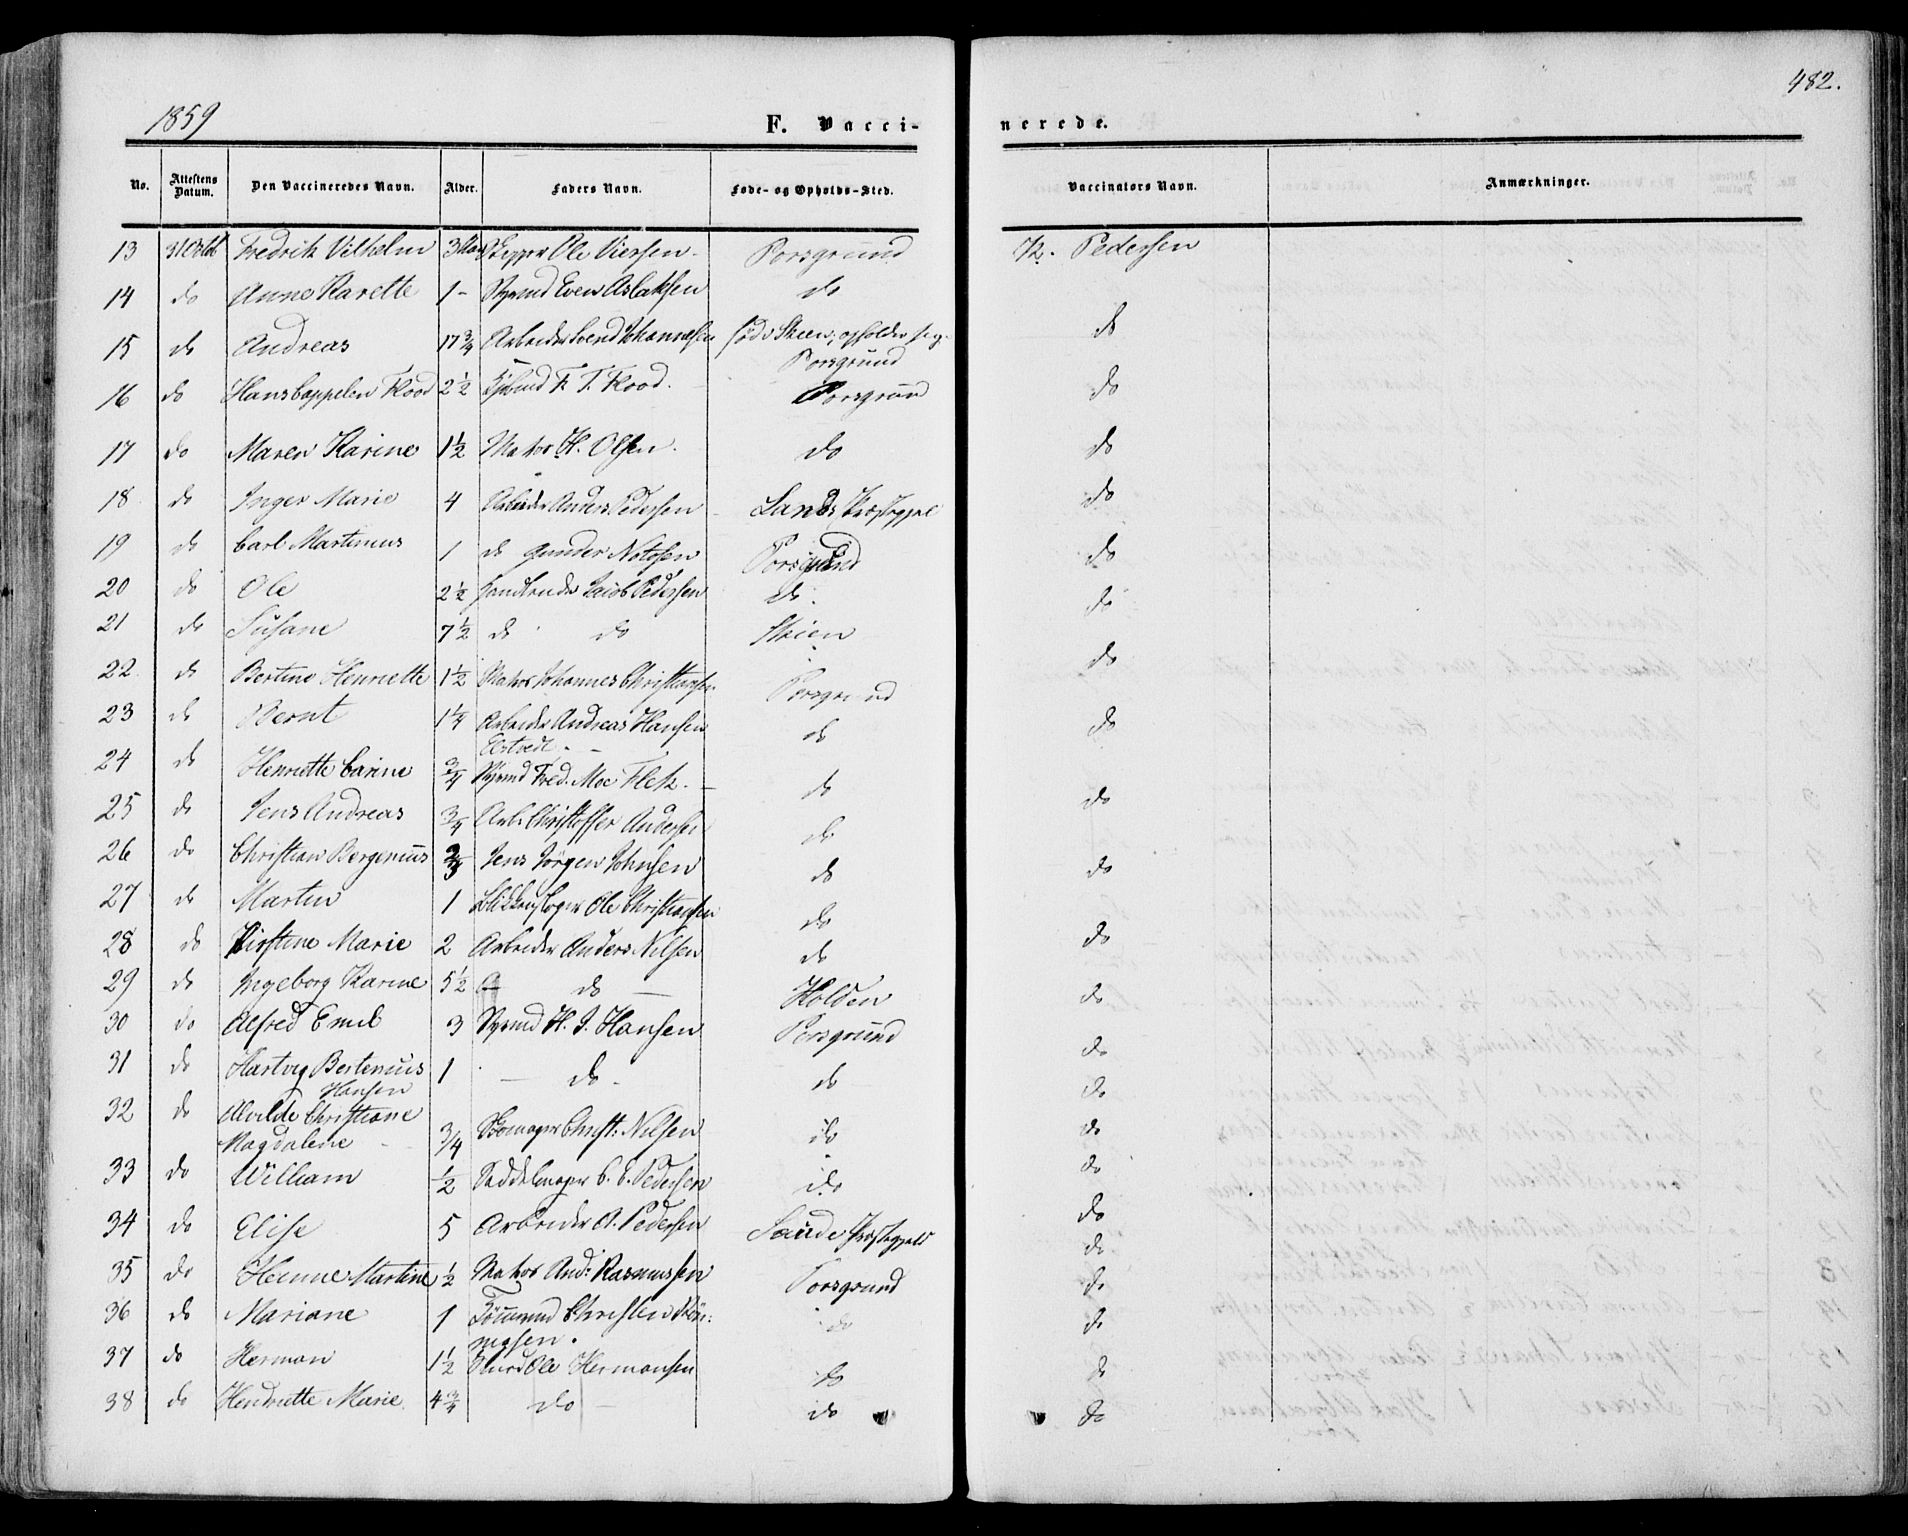 1859
482.
F. Vacci- nerede.
No. Attestens Datum. Den Vaccineredes Navn. Alder. Faders Navn. Føde- og Opholds-Sted. Vaccinators Navn. Anmærkninger.
13 31 Octbr Fredrik Vilhelm 3 Ole Porsgrund Pedersen
14 do Anne Karette 1 - Even Aslaksen do
15 do Andreas 17 3/4 Arbeider Svend Johannesen fød i Skien, opholder sig do
Porsgrund
16 do Hans Cappelen Flood 2 1/2 F. T. Flood. Porsgrund do
17 do Maren Karine 1 1/2 Matros H. Olsen. do do
18 do Inger Marie 4 Arbeider Anders Pedersen do
19 do Carl Martinus 1 do Gunder Porsgrund do
20 do Ole 2 1/2 Jacob Pedersen do. do
21 do Susane 7 1/2 do do Skien do
22 do Bertine Henriette 1 1/2 Matros Johannes Christiansen Porsgrund
23 do Bernt 1 1/4 Arbeider Andreas Hansen do do
24 do Henriette Carine 3/4 Styrmd Fred. Moe Flek. do
25 do Jens Andreas 3/4 Arb. Christoffer Andersen do do
26 do Christian Bergenius Jens Jørgen Johnsen do do
27 do Martin 1 Blikkenslager Ole Christiansen do
28 do Kirstine Marie 2 Arbeider Anders Nilsen do do
29 do Ingeborg Karine 5 1/2 do Holden do
30 do Alfred Emil 3 Styrmd H. J. Hansen Porsgrund do
31 do Hartvig Bertenius 1 - do - do do
Hansen
32 do Alvilde Christiane
Magdalene 3/4 Skomager Christ: Nilsen do do
33 do William 1/2 Saddelmager C. E. Pedersen do do
34 do Elise 5 Arbeider A. Pedersen do
35 do Hanne Martine 1/2 Matros And: Rasmussen Porsgrund do
36 do Mariane 1 Tømmermd Christen do do
37 do Herman 1 1/2 Ole Hermansen do do
38 do Hendriette Marie 4 3/4 do do do